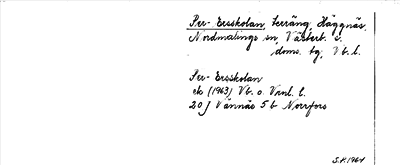 Per-Ersskolan, terräng, Häggnäs,
Nordmalings sn, Västerb. s.
doms. tg, Vb. l.
Per-Ersskolan
ek (1963) Vb. o. Vrnl. l.
20 J Vännäs 5 b Norrfors
S.P. 1964